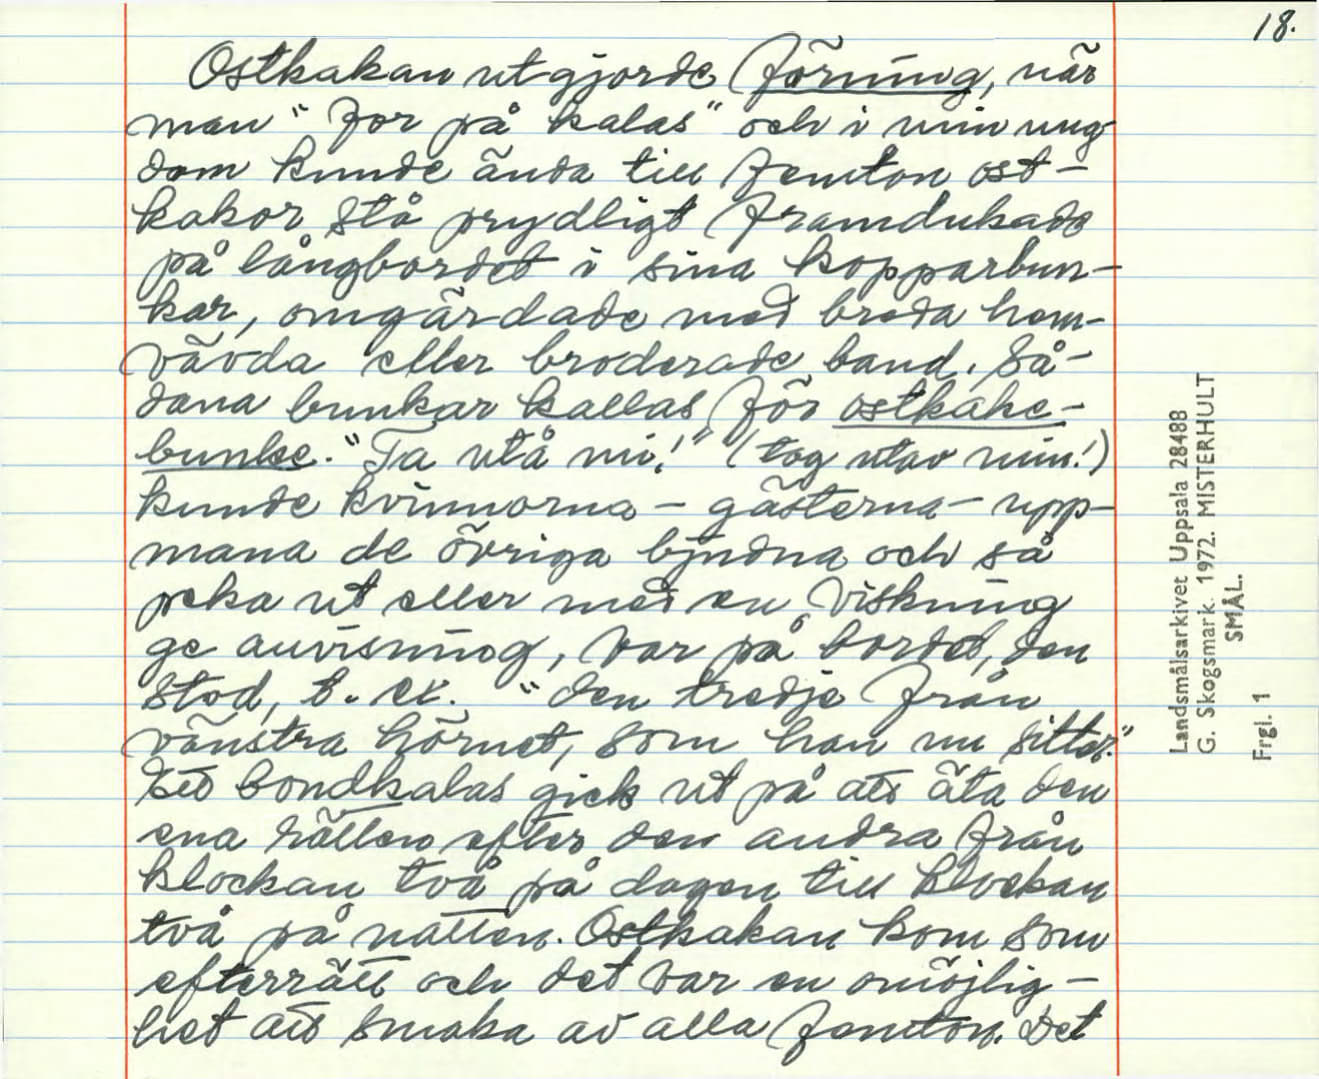 18.
Ostkakan utgjorde förning, när
man "for på kalas" och i min ung
dom kunde ända till femton ost-
kakor stå prydligt framdukade
på långbordet i sina kopparbun-
kar, omgärdade med breda hem-
vävda eller broderade band. Så-
dana bunkar kallas för ostkake-
bunke. "Ta utå mi!" (tag utav min!)
kunde kvinnorna - gästerna - upp-
mana de övriga bjudna och så
peka ut eller med en viskning
ge anvisning, var på bordet, den
stod, t. ex. "den tredje från
vänstra hörnet, som han nu sitter."
Ett bondkalas gick ut på att äta den
ena rätten efter den andra från
klockan två på dagen till klockan
två på natten. Ostkakan kom som
efterrätt och det var en omöjlig-
het att smaka av alla femton. Det
Landsmålsarkivet Uppsala 28488
G. Skogsmark. 1972. MISTERHULT
SMÅL.
Frgl. 1